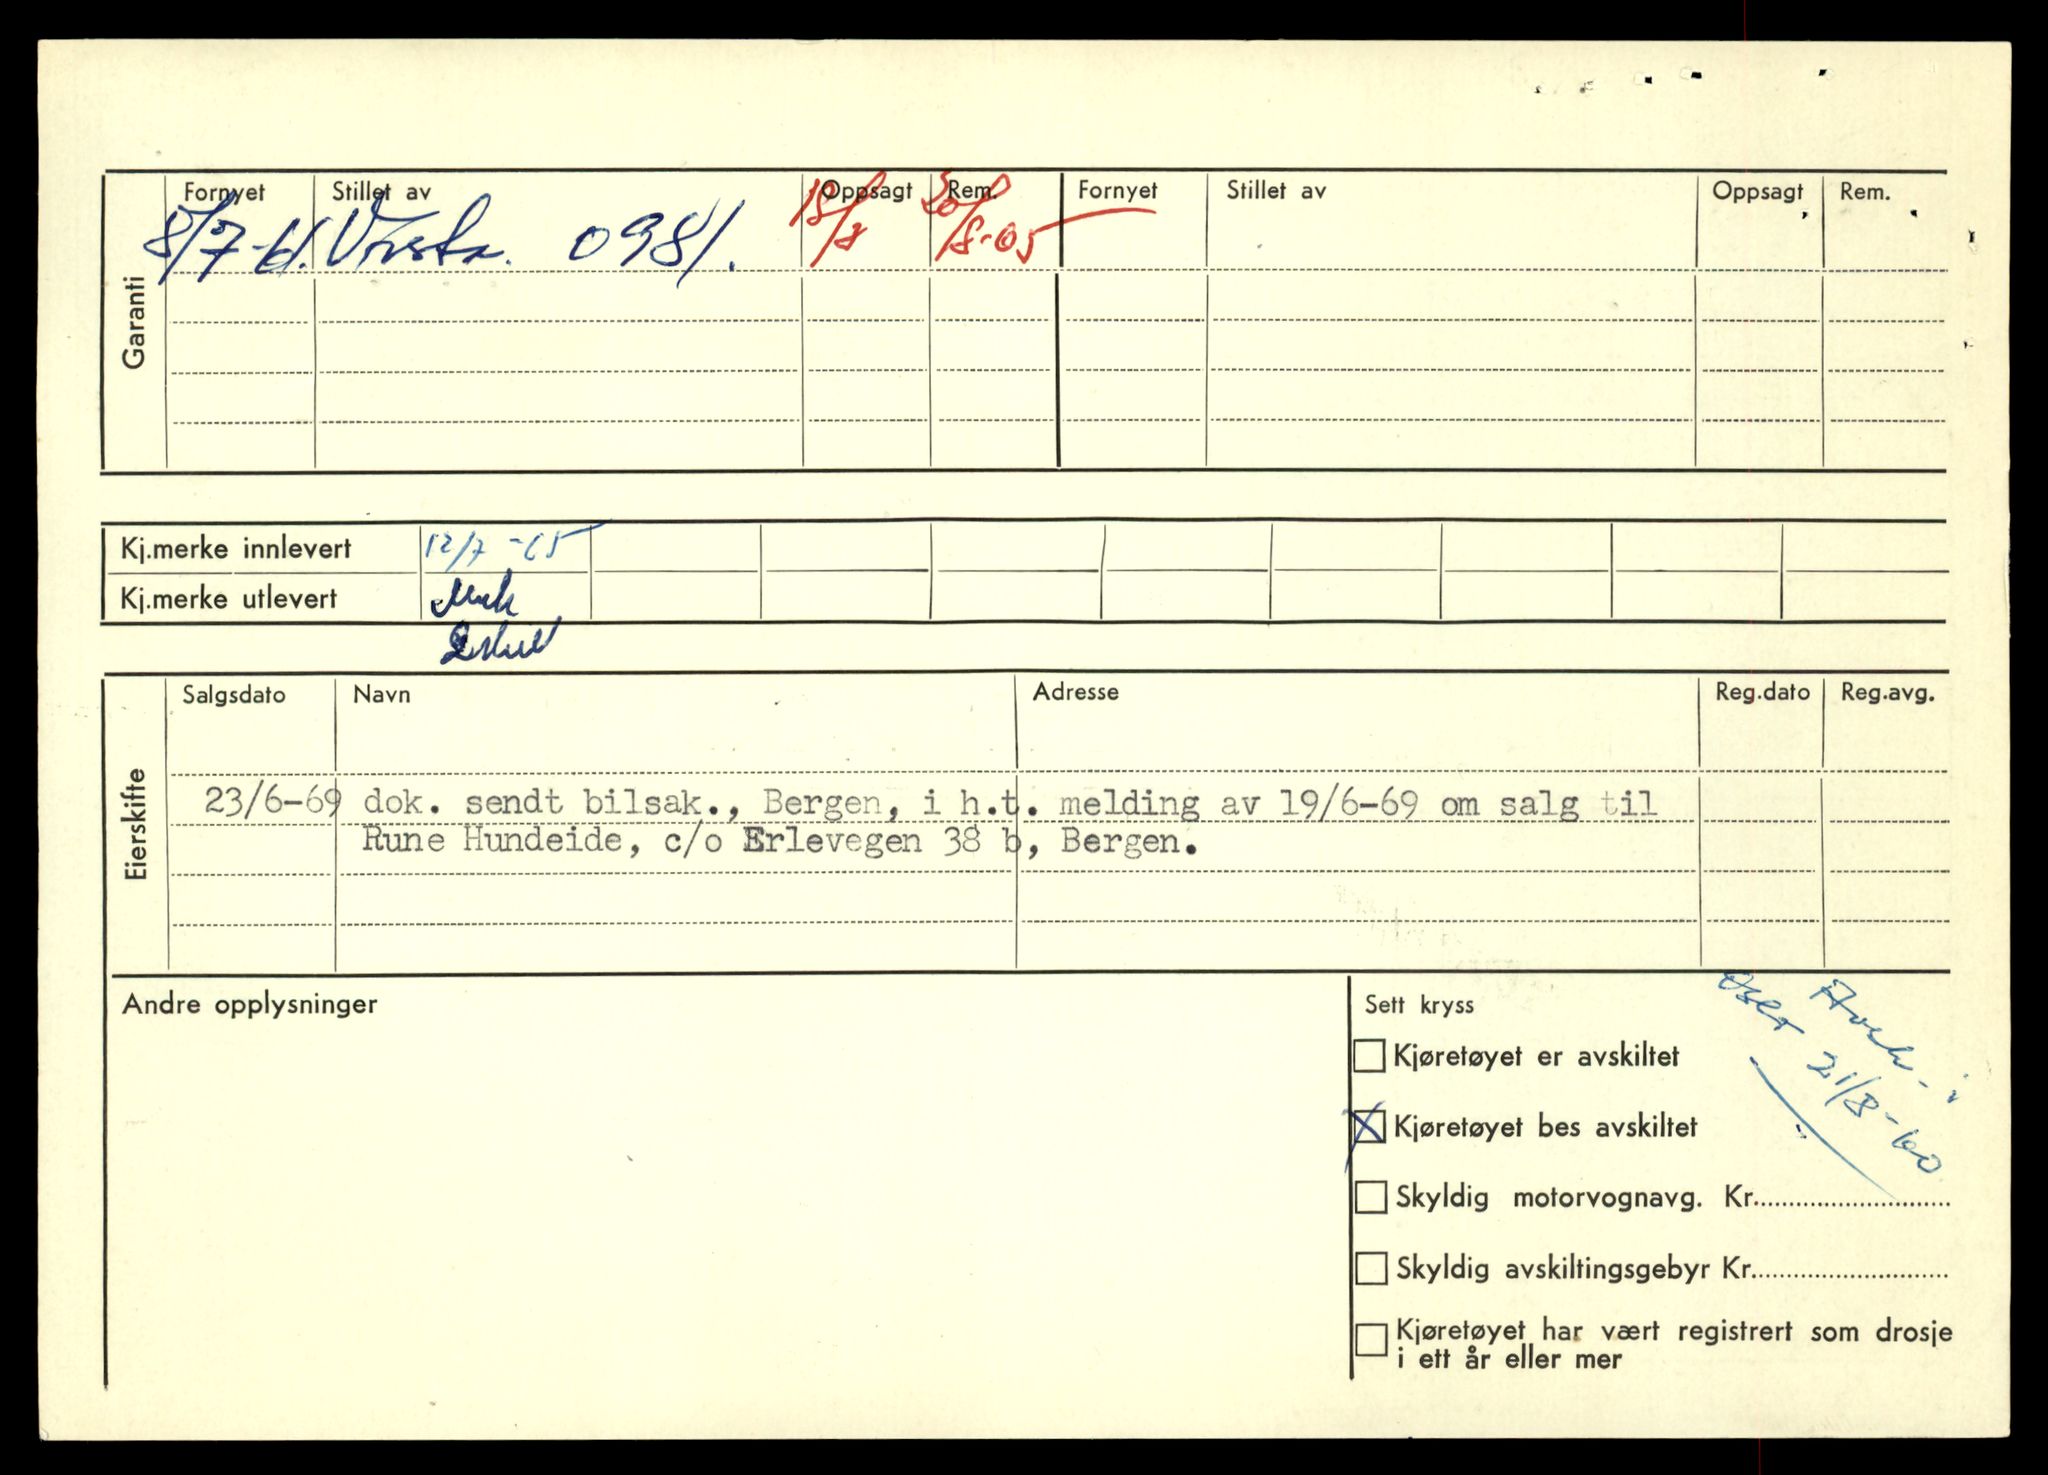 Garanti
Fornyet Stillet av Oppsagt Rem. Fornyet Stillet av Oppsagt Rem.
8/7-61. 0981. 18/8 20/8-65
Kj.merke innlevert 12/7-65
Kj.merke utlevert
Eierskifte
Salgsdato Navn Adresse Reg.dato Reg.avg.
23/6-69 dok. sendt bilsak., Bergen, i h.t. melding av 19/6-69 om salg til
Rune Hundeide, c/o Erlevegen 38 b, Bergen.
Andre opplysninger
Sett kryss
Kjøretøyet er avskiltet
X Kjøretøyet bes avskiltet
Skyldig motorvognavg. Kr.
Skyldig avskiltingsgebyr Kr.
Kjøretøyet har vært registrert som drosje
i ett år eller mer
21/8-60